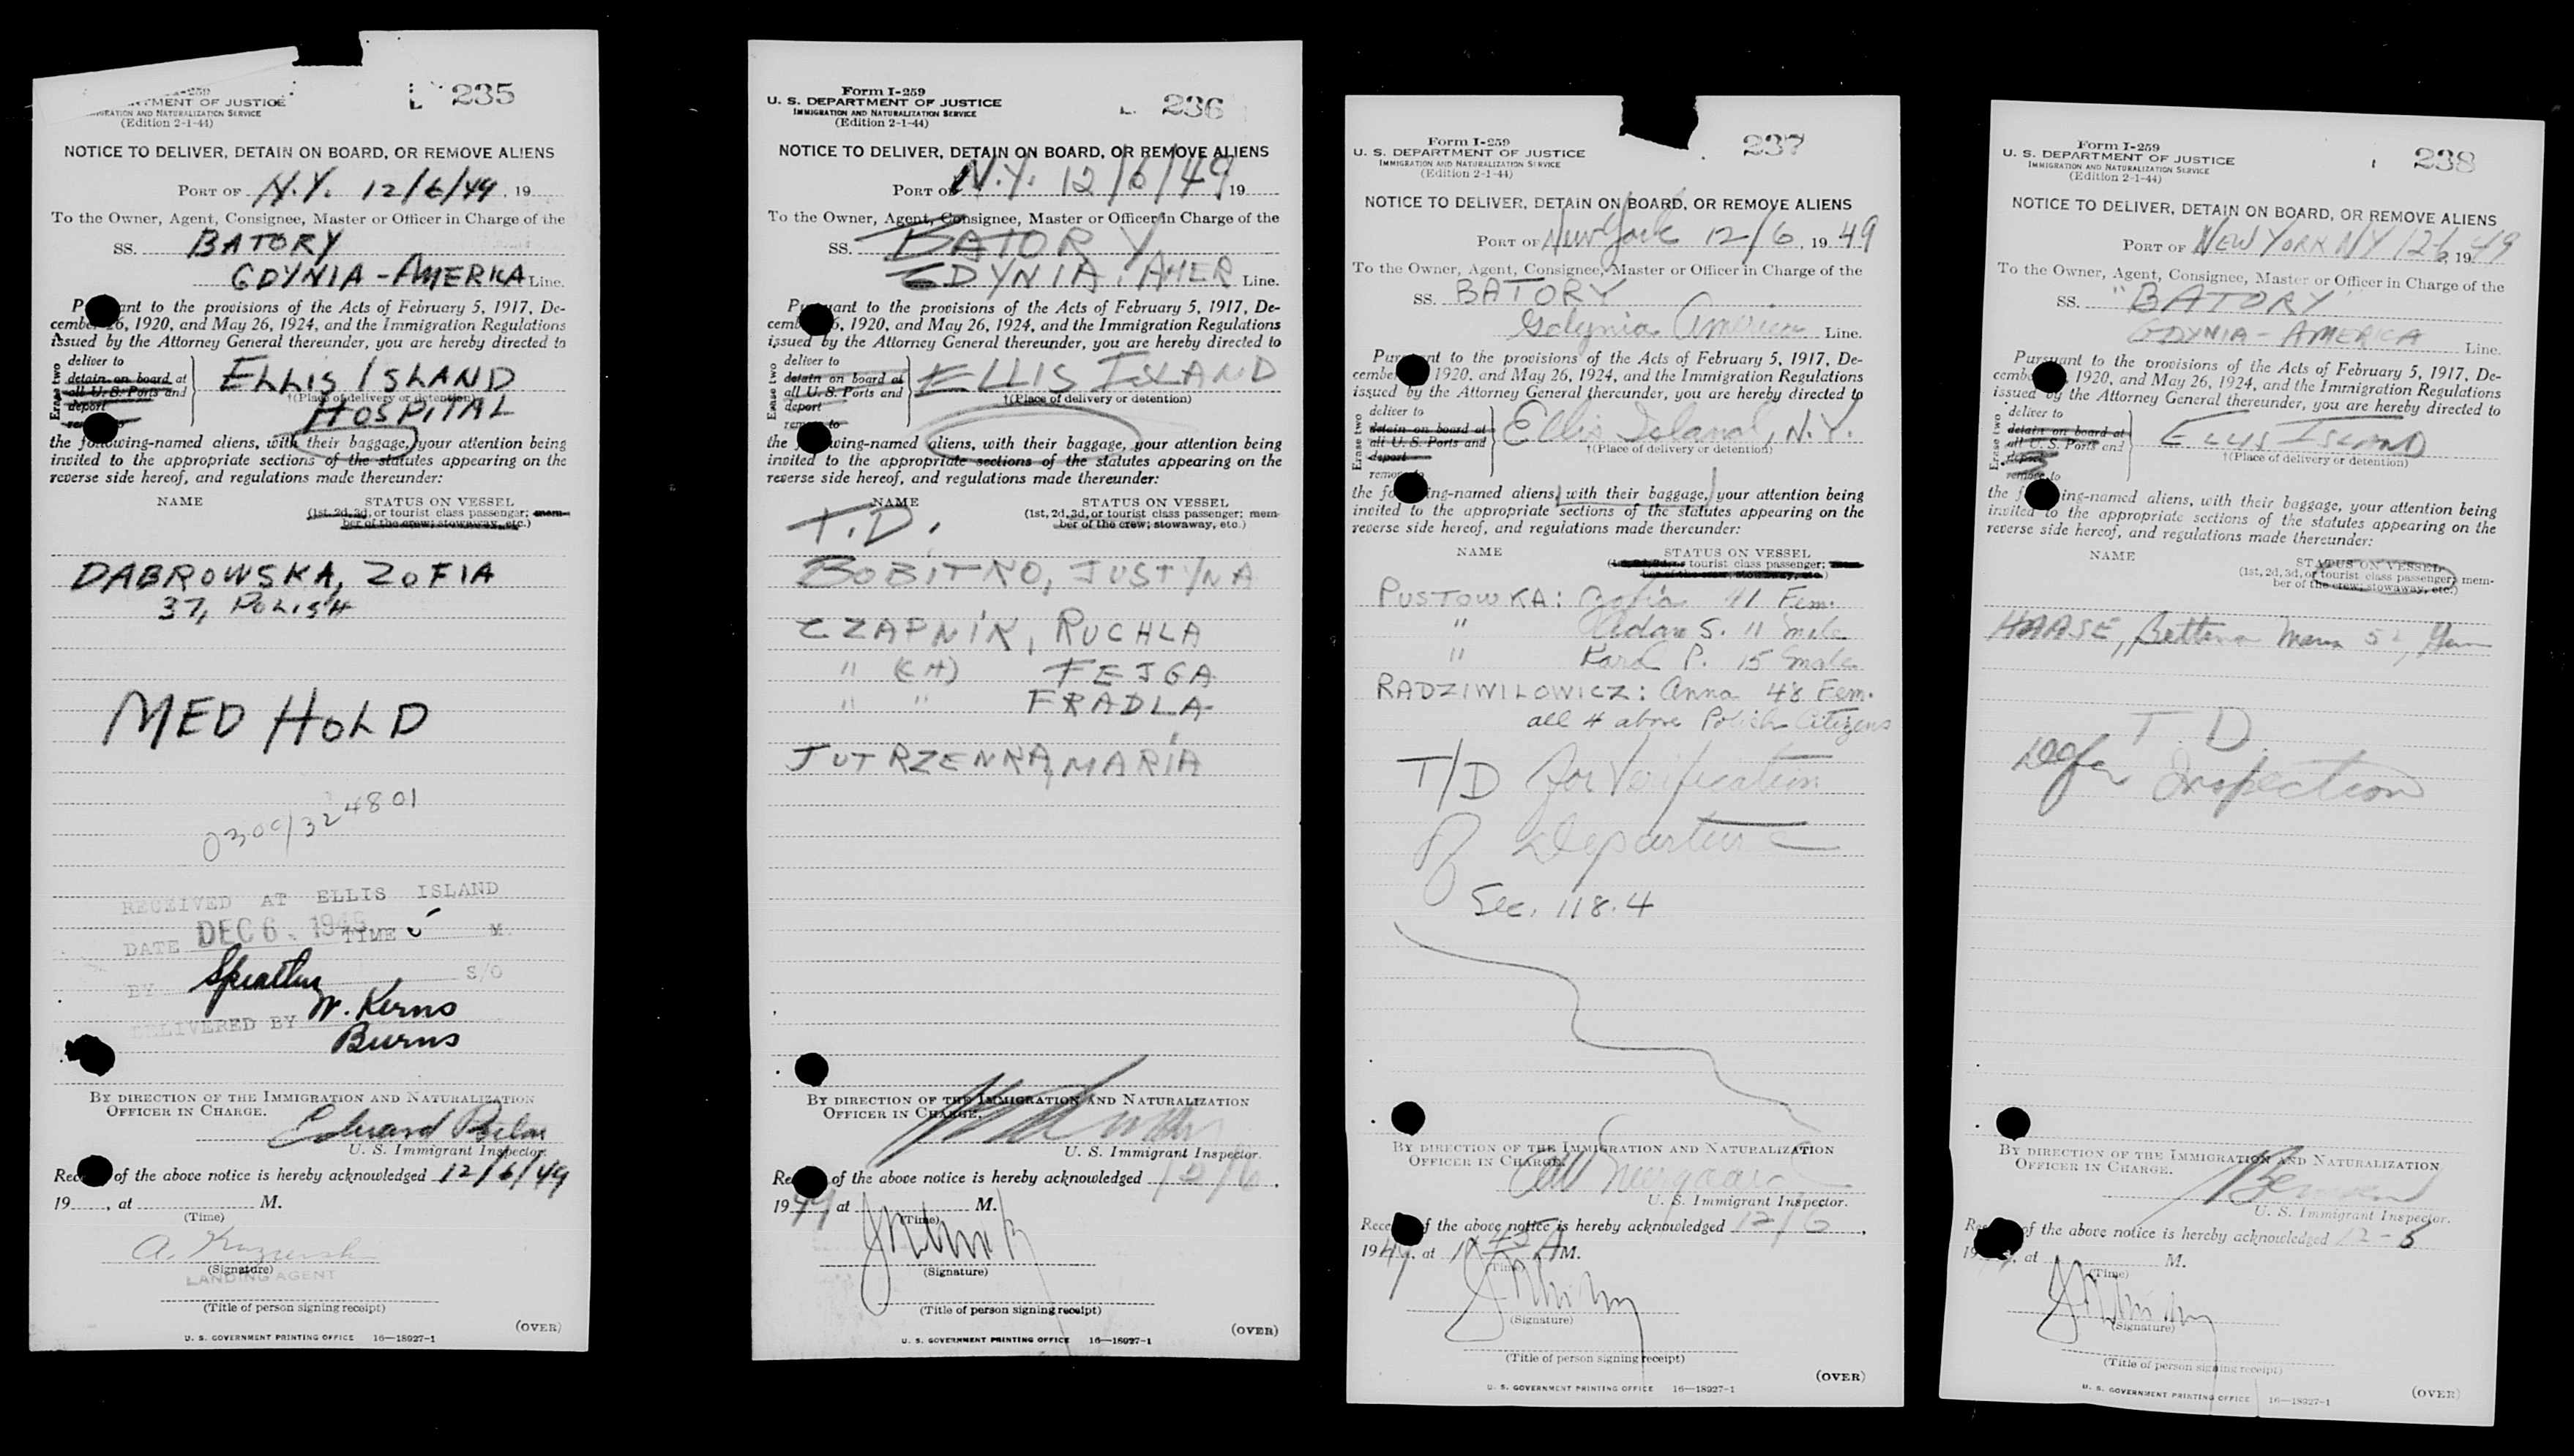 235
MENT OF JUSTICE
IMMIGRATION AND NATURALIZATION SERVICE
(Edition 2-1-44)
NOTICE TO DELIVER, DETAIN ON BOARD, OR REMOVE ALIENS
PORT OF N.Y. 12/6/49, 19
To the Owner, Agent, Consignee, Master or Officer in Charge of the
SS. BATORY
GDYNIA-AMERICA Line.
P ant to the provisions of the Acts of February 5, 1917, De-
cember 26, 1920, and May 26, 1924, and the Immigration Regulations
issued by the Attorney General thereunder, you are hereby directed to
Erase two
deliver to
detain on board at
all U. S. Ports and
deport
ELLIS ISLAND
†(Place of delivery or detention)
HOSPITAL
the following-named aliens, with their baggage, your attention being
invited to the appropriate sections of the statutes appearing on the
reverse side hereof, and regulations made thereunder:
NAME STATUS ON VESSEL
(1st, 2d, 3d, or tourist class passenger; mem-
ber of the crew; stowaway, etc.)
DABROWSKA, ZOFIA
37, POLISH
MED HOLD
0300/324801
RECEIVED AT ELLIS ISLAND
DATE DEC 6 1949 TIME M.
BY S/O
DELIVERED BY W. Kerns
Burns
BY DIRECTION OF THE IMMIGRATION AND NATURALIZATION
OFFICER IN CHARGE.
Edward
U. S. Immigrant Inspector.
Rec of the above notice is hereby acknowledged 12/6/49
19 , at M.
(Time)
A.
(Signature)
LANDING AGENT
(Title of person signing receipt)
(OVER)
U. S. GOVERNMENT PRINTING OFFICE 16—18927-1
236
Form I-259
U. S. DEPARTMENT OF JUSTICE
IMMIGRATION AND NATURALIZATION SERVICE
(Edition 2-1-44)
NOTICE TO DELIVER, DETAIN ON BOARD, OR REMOVE ALIENS
PORT OF N.Y. 12/6/49 19
To the Owner, Agent, Consignee, Master or Officer in Charge of the
SS. BATORY
GDYNIA. AMER Line.
P uant to the provisions of the Acts of February 5, 1917, De-
cemb 6, 1920, and May 26, 1924, and the Immigration Regulations
issued by the Attorney General thereunder, you are hereby directed to
Erase two
deliver to
detain on board at
all U. S. Ports and
deport
remove to
ELLIS ISLAND
†(Place of delivery or detention)
the following-named aliens, with their baggage, your attention being
invited to the appropriate sections of the statutes appearing on the
reverse side hereof, and regulations made thereunder:
NAME STATUS ON VESSEL
(1st, 2d, 3d, or tourist class passenger; mem-
ber of the crew; stowaway, etc.)
T.D.
BOBITKO, JUSTYNA
CZAPNIK, RUCHLA
" (CH) FEJGA
" " FRADLA
JUTRZENKA, MARIA
BY DIRECTION OF THE IMMIGRATION AND NATURALIZATION
OFFICER IN CHARGE.
U. S. Immigrant Inspector.
Re of the above notice is hereby acknowledged 12/6,
1949 at M.
(Time)
(Signature)
(Title of person signing receipt)
(OVER)
U. S. GOVERNMENT PRINTING OFFICE 16—18927-1
237
Form I-259
U. S. DEPARTMENT OF JUSTICE
IMMIGRATION AND NATURALIZATION SERVICE
(Edition 2-1-44)
NOTICE TO DELIVER, DETAIN ON BOARD, OR REMOVE ALIENS
PORT OF New York 12/6, 1949
To the Owner, Agent, Consignee, Master or Officer in Charge of the
SS. BATORY
Gdynia America Line.
Pursuant to the provisions of the Acts of February 5, 1917, De-
cembe 1920, and May 26, 1924, and the Immigration Regulations
issued by the Attorney General thereunder, you are hereby directed to
Erase two
deliver to
detain on board at
all U. S. Ports and
deport
remove to
Ellis Island, N.Y.
†(Place of delivery or detention)
the following-named aliens, with their baggage, your attention being
invited to the appropriate sections of the statutes appearing on the
reverse side hereof, and regulations made thereunder:
NAME STATUS ON VESSEL
tourist class passenger; mem-
ber of the crew, stowaway, etc.)
PUSTOWKA: Zofia 41 Fem.
" Adam S. 11 male
" Karol P. 15 male
RADZIWILOWICZ: Anna 48 Fem.
all 4 above Polish Citizens
T/D for Verification
of Departure
Sec. 118.4
BY DIRECTION OF THE IMMIGRATION AND NATURALIZATION
OFFICER IN CHARGE.
U. S. Immigrant Inspector.
Rece f the above notice is hereby acknowledged 12/6,
1949, at AM.
(Time)
(Signature)
(Title of person signing receipt)
(OVER)
U. S. GOVERNMENT PRINTING OFFICE 16—18927-1
238
Form I-259
U. S. DEPARTMENT OF JUSTICE
IMMIGRATION AND NATURALIZATION SERVICE
(Edition 2-1-44)
NOTICE TO DELIVER, DETAIN ON BOARD, OR REMOVE ALIENS
PORT OF NEW YORK NY 12/6, 1949
To the Owner, Agent, Consignee, Master or Officer in Charge of the
SS. "BATORY"
GDYNIA-AMERICA Line.
Pursuant to the provisions of the Acts of February 5, 1917, De-
cemb , 1920, and May 26, 1924, and the Immigration Regulations
issued by the Attorney General thereunder, you are hereby directed to
Erase two
deliver to
detain on board at
all U. S. Ports and
deport
remove to
ELLIS ISLAND
†(Place of delivery or detention)
the f ing-named aliens, with their baggage, your attention being
invited to the appropriate sections of the statutes appearing on the
reverse side hereof, and regulations made thereunder:
NAME STATUS ON VESSEL
(1st, 2d, 3d, or tourist class passenger; mem-
ber of the crew; stowaway, etc.)
HAASE, Bettina
T. D.
Defer Inspection
BY DIRECTION OF THE IMMIGRATION AND NATURALIZATION
OFFICER IN CHARGE.
U. S. Immigrant Inspector.
Re of the above notice is hereby acknowledged 12-6
19 , at M.
(Time)
(Signature)
(Title of person signing receipt)
(OVER)
U. S. GOVERNMENT PRINTING OFFICE 16—18927-1